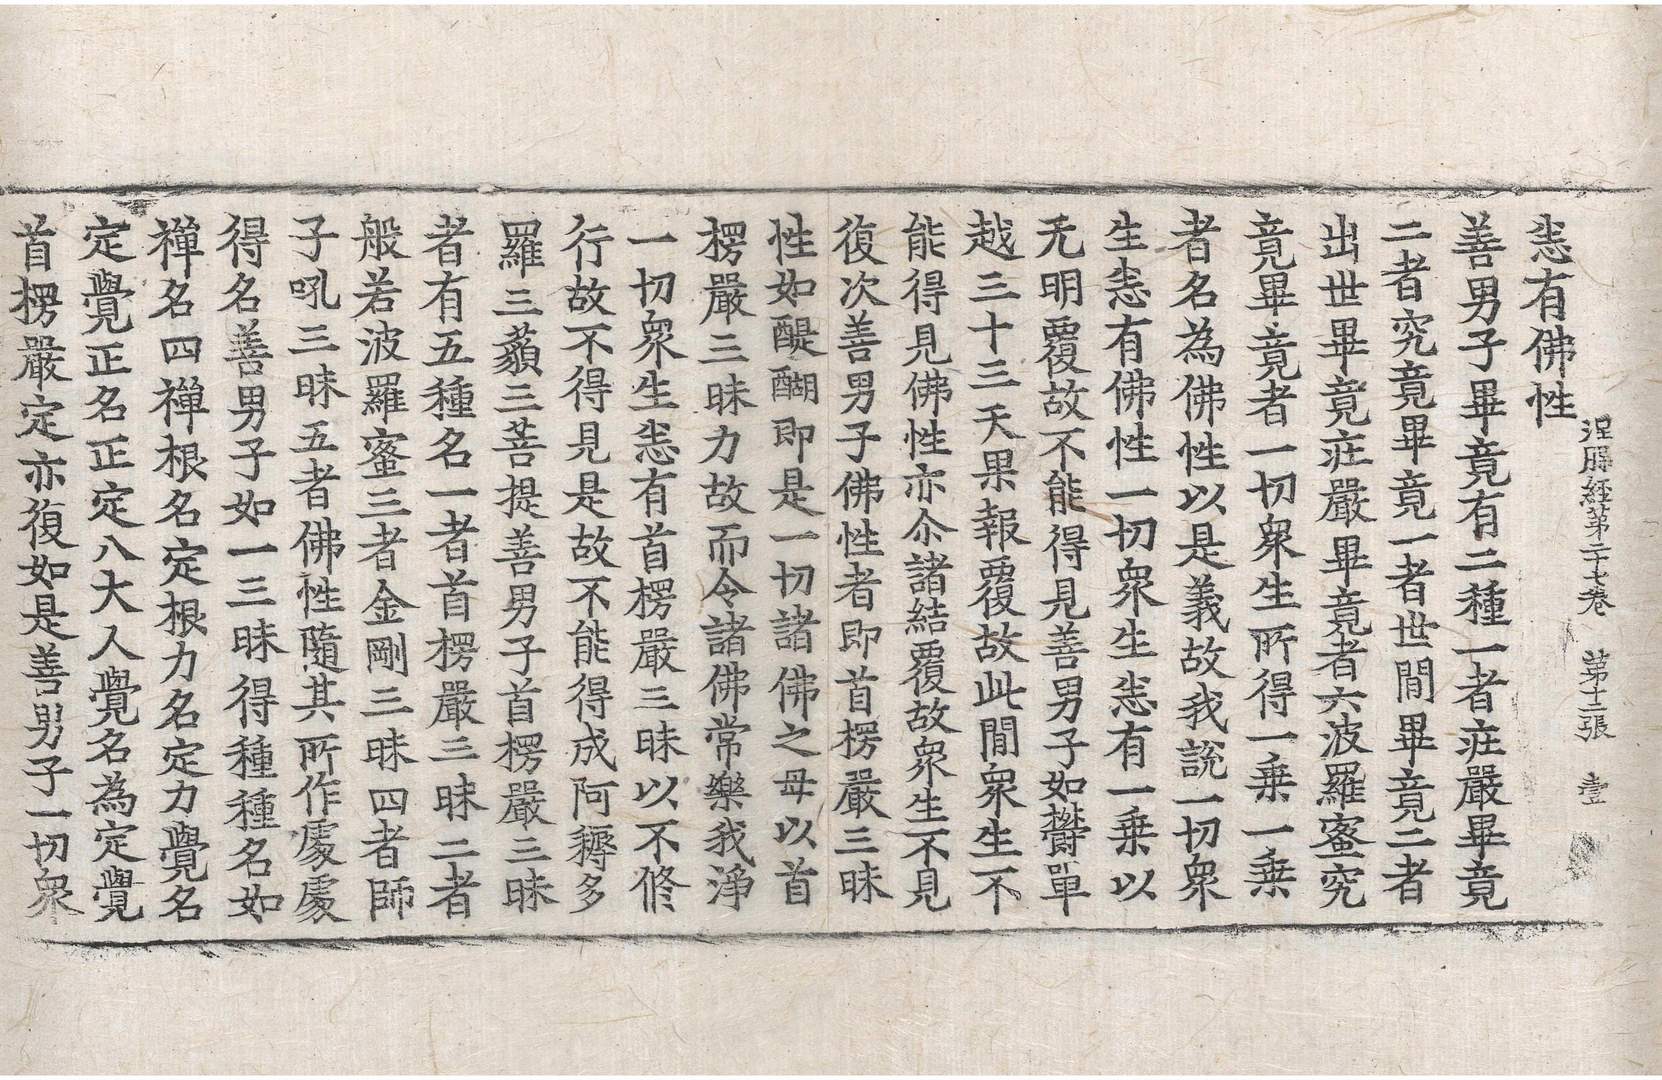 涅槃経第二十七卷　第十二張　壹
恙有佛性
善男子畢竟有二種一者莊嚴畢竟
二者究竟畢竟一者世閒畢竟二者
出世畢竟莊嚴畢竟者六波羅蜜究
竟畢竟者一切衆生所得一乗一乗
者名為佛性以是義故我說一切衆
生恙有佛性一切衆生恙有一乗以
无明覆故不能得見善男子如欝單
越三十三天果報覆故此閒衆生不
能得見佛性亦尒諸結覆故衆生不見
復次善男子佛性者即首楞嚴三昧
性如醍醐即是一切諸佛之母以首
楞嚴三昧力故而令諸佛常樂我淨
一切衆生恙有首楞嚴三昧以不修
行故不得見是故不能得成阿耨多
羅三藐三菩提善男子首楞嚴三昧
者有五種名一者首楞嚴三昧二者
般若波羅蜜三者金剛三昧四者師
子吼三昧五者佛性隨其所作處處
得名善男子如一三昧得種種名如
禪名四禪根名定根力名定力覺名
定覺正名正定八大人覺名為定覺
首楞嚴定亦復如是善男子一切衆